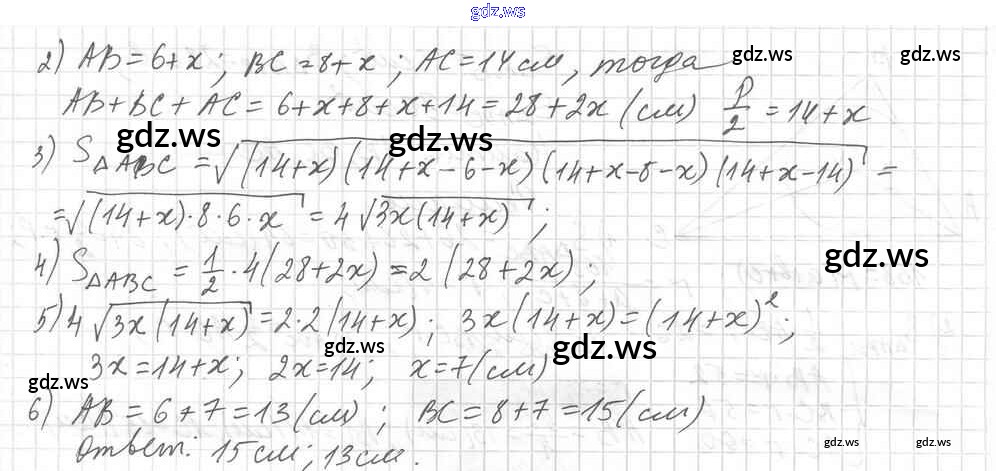 gdz.ws
2) AB = 6 + x ; BC = 8 + x ; AC = 14 см, тогда gdz.ws
AB + BC + AC = 6 + x + 8 + x + 14 = 28 + 2x (см) P/2 = 14 + x
gdz.ws gdz.ws
3) S△ABC = √((14+x)(14+x-6-x)(14+x-8-x)(14+x-14)) =
= √((14+x)·8·6·x) = 4√(3x(14+x)) ;
gdz.ws
4) S△ABC = 1/2 · 4(28+2x) = 2(28+2x) ;
5) 4√(3x(14+x)) = 2·2(14+x) ; 3x(14+x) = (14+x)² ;
gdz.ws gdz.ws
3x = 14 + x ; 2x = 14 ; x = 7 (см)
gdz.ws
6) AB = 6 + 7 = 13 (см) ; BC = 8 + 7 = 15 (см)
gdz.ws gdz.ws
Ответ: 15 см ; 13 см.